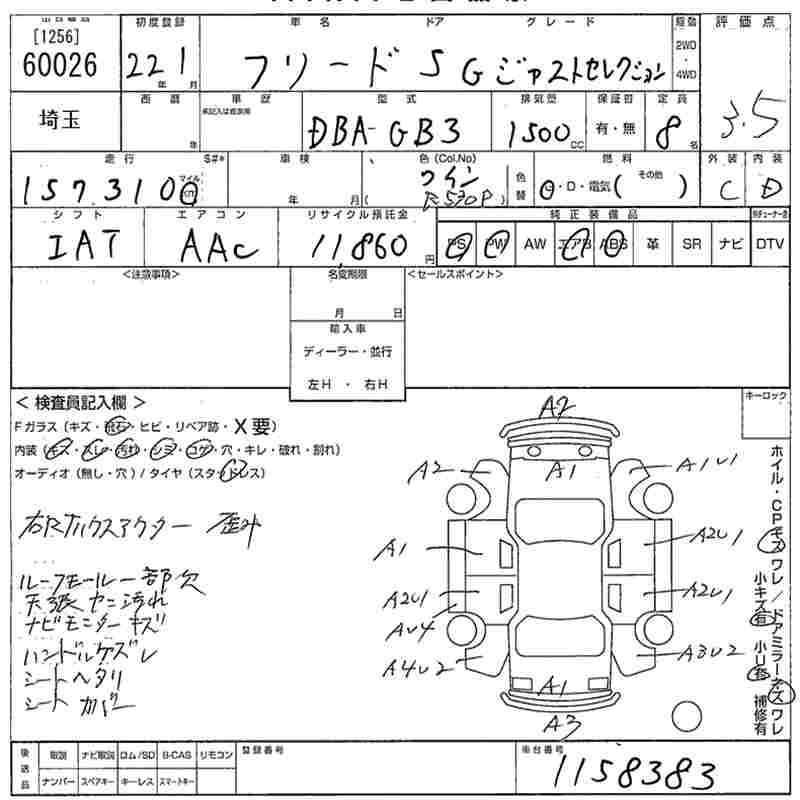 [1256]
60026
初度登録 車名 ドア グレード 駆動 評価点
22年 1月 フリード 5 Gジャストセレクション 2WD・4WD 3.5
埼玉
西暦 車歴 型式 排気量 保証書 定員
年 DBA-GB3 1500cc 有・無 8名
走行 S#* 車検 色(Col,No) 色替 燃料 外装 内装
157,310 マイル km 年 月 ワイン (R530P) G・D・電気( その他 ) C D
シフト エアコン リサイクル預託金 純正装備品
IAT AAC 11,860円 PS PW AW エアB ABS 革 SR ナビ DTV
<注意事項> 名変期限 <セールスポイント>
月 日
輸入車
ディーラー・並行
左H ・ 右H
<検査員記入欄> キーロック
Fガラス(キズ・飛石・ヒビ・リペア跡・X要)
内装(キズ・スレ・汚れ・シミ・コゲ・穴・キレ・破れ・割れ)
オーディオ(無し・穴)/タイヤ(スタッドレス)
ルーフモール一部欠
天張ヤニ汚れ
ナビモニターキズ
ハンドルケズレ
シートヘタリ
シートカバー
A2
A2 A1 A1U1
A1 A2U1
A2U1 A2U1
AU4
A4U2 A3U2
A1
A3
ホイル・CPキズ ワレ/ドアミラーキズ ワレ
小キズ有 小U有 補修有
後送品 取説 ナビ取説 ロム/SD B-CAS リモコン 登録番号 車台番号
ナンバー スペアキー キーレス スマートキー 1158383